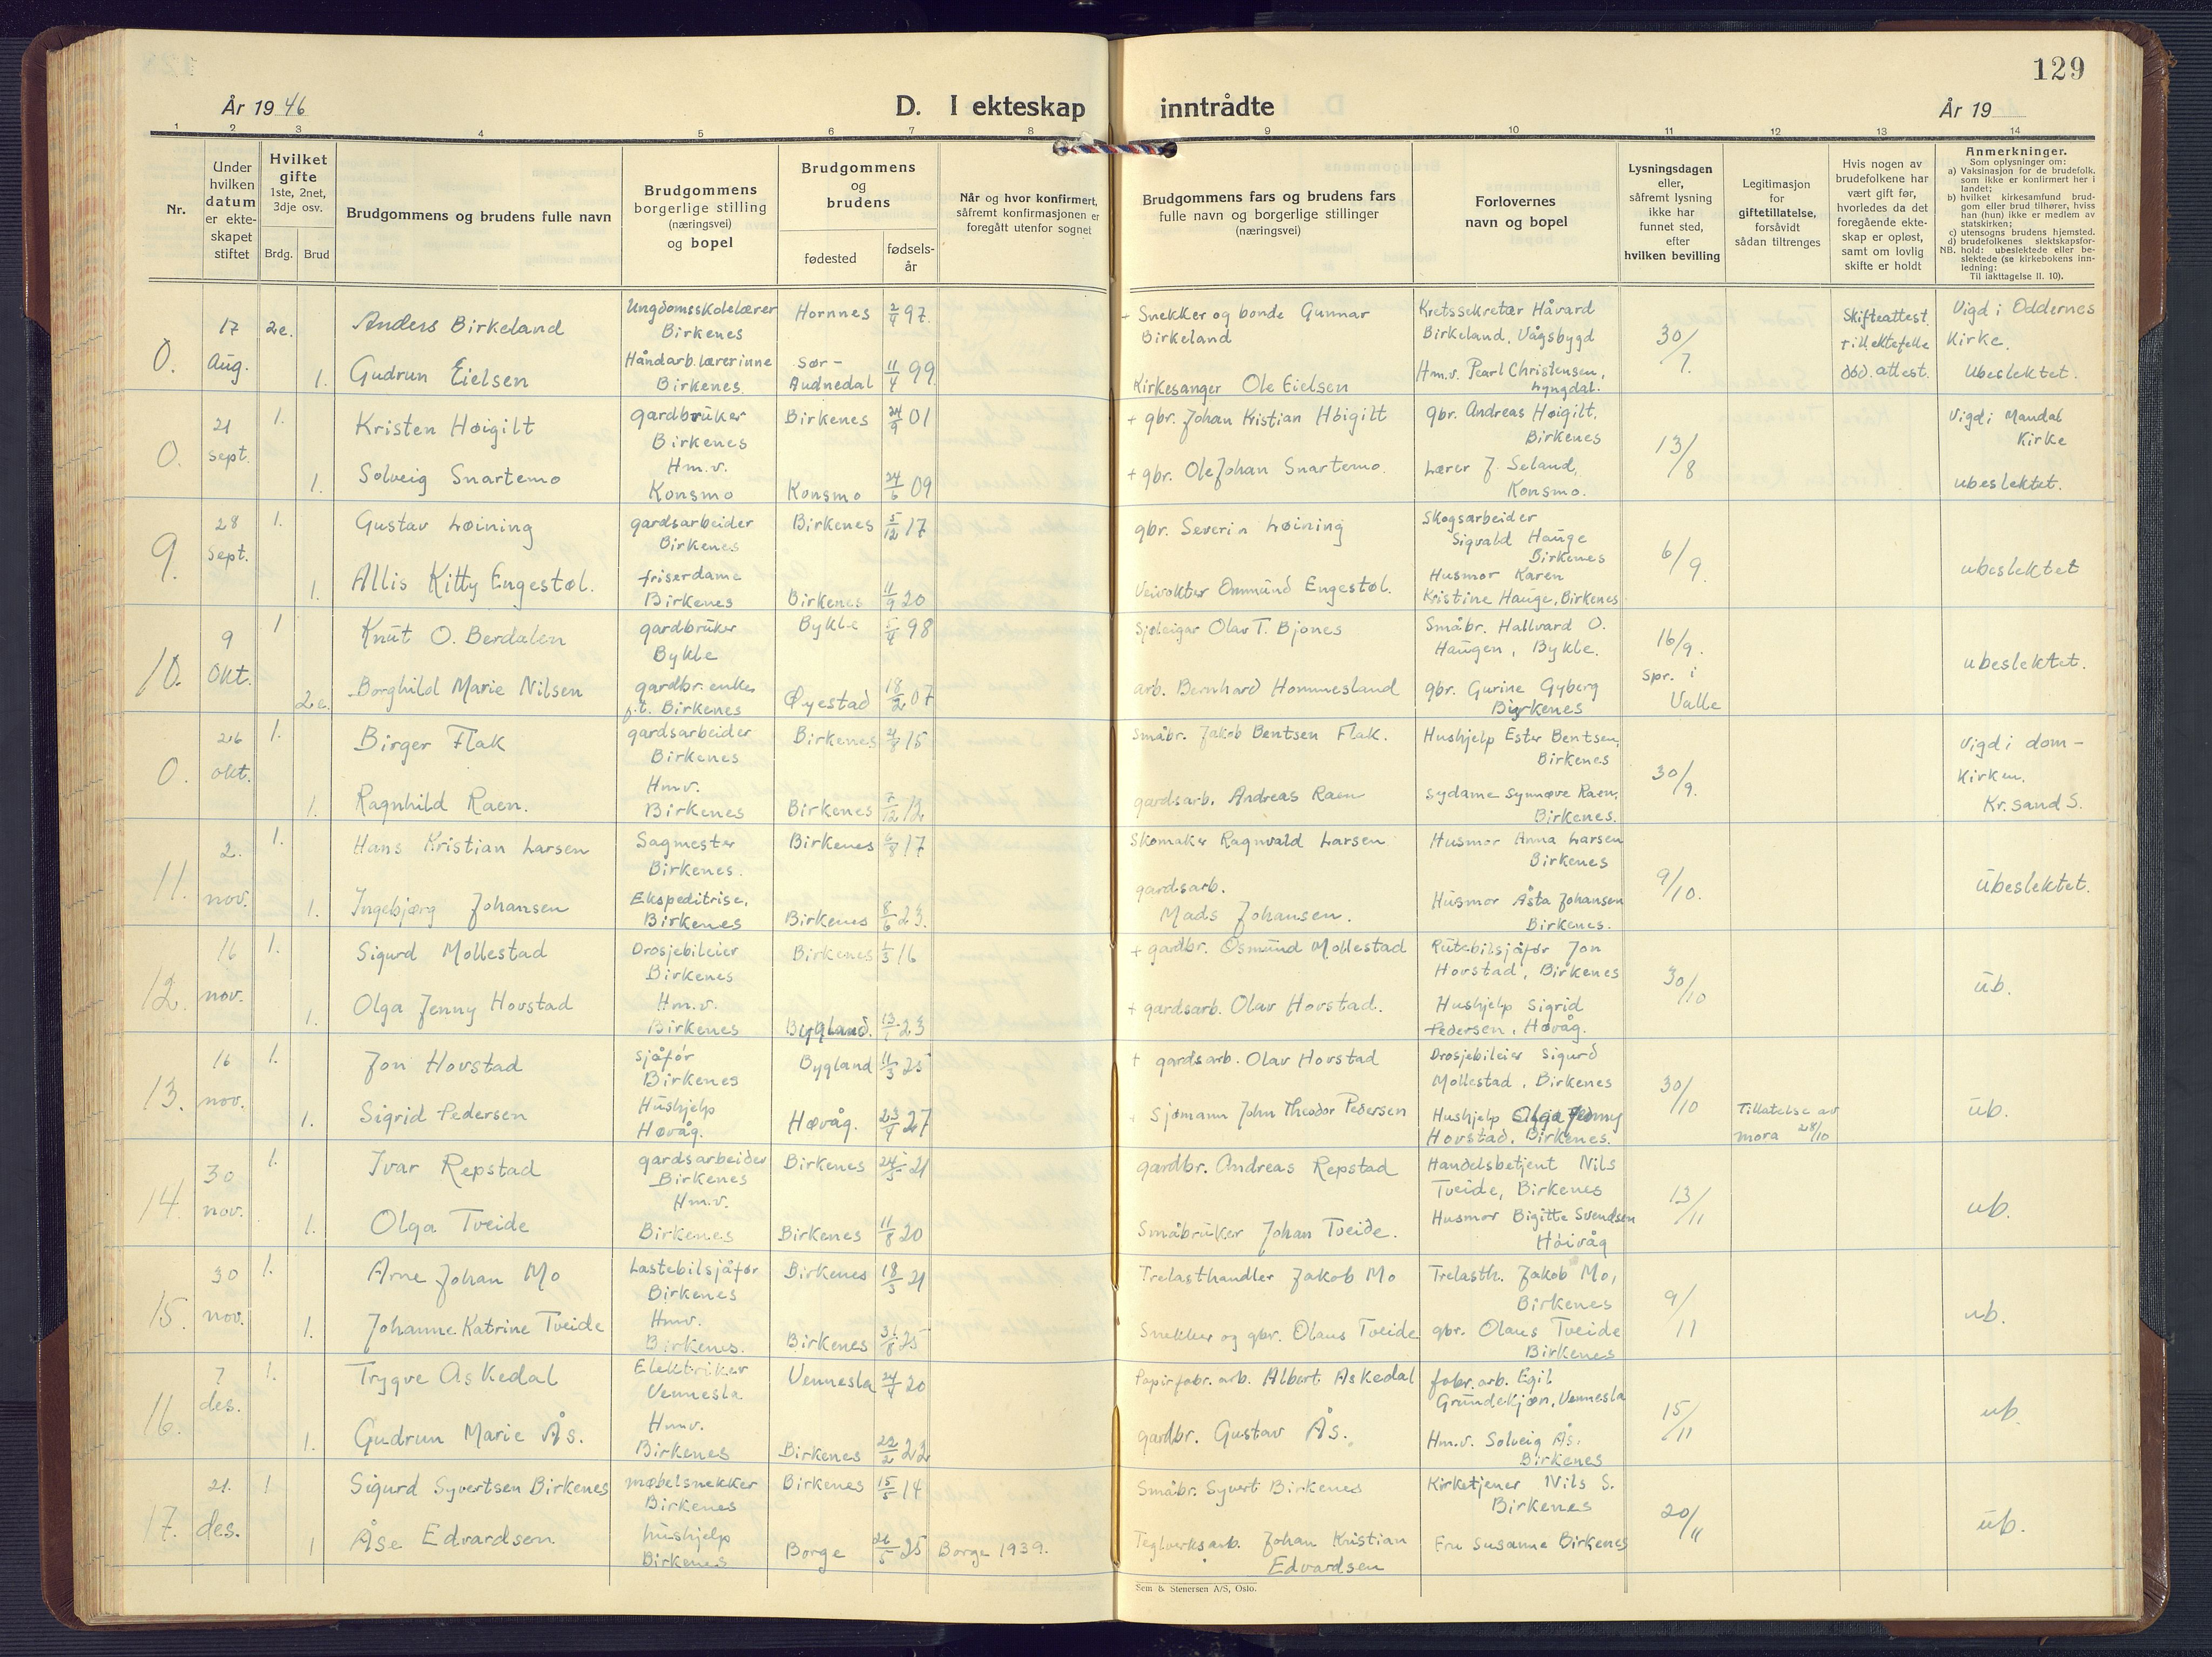 129
År 1946
D. I ekteskap inntrådte
År 19
1 2 3 4 5 6 7 8 9 10 11 12 13 14
Nr.
Under hvilken datum er ekte-skapet stiftet
Hvilket gifte
1ste, 2net, 3dje osv.
Brdg. Brud
Brudgommens og brudens fulle navn
Brudgommens borgerlige stilling (næringsvei) og bopel
Brudgommens og brudens
fødested
fødsels-år
Når og hvor konfirmert, såfremt konfirmasjonen er foregått utenfor sognet
Brudgommens fars og brudens fars fulle navn og borgerlige stillinger (næringsvei)
Forlovernes navn og bopel
Lysningsdagen eller, såfremt lysning ikke har funnet sted, efter hvilken bevilling
Legitimasjon for giftetillatelse, forsåvidt sådan tiltrenges
Hvis nogen av brudefolkene har vært gift før, hvorledes da det foregående ekte-skap er opløst, samt om lovlig skifte er holdt
Anmerkninger.
Som oplysninger om:
a) Vaksinasjon for de brudefolk. som ikke er konfirmert her i landet;
b) hvilket kirkesamfund brud-gom eller brud tilhører, hviss han (hun) ikke er medlem av statskirken;
c) utensogns brudens hjemsted.
d) brudefolkenes slektskapsfor-hold: ubeslektede eller be-slektede (se kirkebokens inn-ledning:
NB.
Til iakttagelse II. 10).
0. 17 Aug. 2e. Anders Birkeland Ungdomsskolelærer Birkenes Hornnes 2/4 97. + Snekker og bonde Gunnar Birkeland Kretssekretær Håvard Birkeland, Vågsbygd 30/7. Skifteattest. till ektefelle död. attest. Vigd i Oddernes Kirke.
1. Gudrun Eielsen Håndarb.lærerinne Birkenes. Sør-Audnedal 11/4 99 Kirkesanger Ole Eielsen Hm.v. Pearl Christensen, Lyngdal. Ubeslektet.
0. 21 sept. 1. Kristen Høigilt gardbruker Birkenes Birkenes 24/9 01 + gbr. Johan Kristian Höigilt gbr. Andreas Høigilt. Birkenes 13/8 Vigd i Mandal Kirke
1. Solveig Snartemo Hm.v. Konsmo Konsmo 24/6 09 + gbr. Ole Johan Snartemo. Lærer J. Seland, Konsmo. ubeslektet.
9. 28 sept. 1. Gustav Løining gardsarbeider Birkenes Birkenes 5/12 17 gbr. Severin Løining Skogsarbeider Sigvald Hauge Birkenes 6/9.
1. Allis Kitty Engestøl. friserdame Birkenes Birkenes 11/9 20 Veivokter Ommund Engestøl. Husmor Karen Kristine Hauge, Birkenes ubeslektet
10. 9 Okt. 1 Knut O. Berdalen gardbruker Bykle Bykle 5/4 98 Sjøleigar Olav T. Bjones Småbr. Hallvard O. Haugen, Bykle. 16/9. spr. i Valle
2e. Borghild Marie Nilsen gardbr. enke, f.t. Birkenes Øyestad 18/2 07 arb. Bernhard Hommesland gbr. Gurine Gyberg Birkenes ubeslektet.
0. 26 okt. 1. Birger Flak gardsarbeider Birkenes Birkenes 4/8 15 Småbr. Jakob Bentsen Flak. Hushjelp Ester Bentsen, Birkenes 30/9. Vigd i dom-Kirken. Kr.sand S.
1. Ragnhild Raen. Hmv. Birkenes Birkenes 7/12 12 gardsarb. Andreas Raen sydame Synnøve Raen, Birkenes.
11. 2. nov. 1. Hans Kristian Larsen Sagmester Birkenes. Birkenes 6/8 17 Skomaker Ragnvald Larsen Husmor Anna Larsen Birkenes 9/10.
1. Ingebjørg Johansen Ekspeditrise, Birkenes Birkenes 8/6 23. gardsarb. Mads Johansen. Husmor Åsta Johansen Birkenes. Ubeslektet.
12. 16 nov. 1. Sigurd Mollestad Drosjebileier Birkenes Birkenes 1/3 16 + gardbr. Osmund Mollestad Rutebilsjåfør Jon Hovstad, Birkenes 30/10 üb.
1. Olga Jenny Hovstad Hm.v. Birkenes Bygland. 13/1 23 + gardsarb. Olav Hovstad. Hushjelp Sigrid Pedersen, Høvåg.
13. 16 nov. 1. Jon Hovstad sjåfør Birkenes Bygland 11/3 25 + gardsarb. Olav Hovstad Drosjebileier Sigurd Mollestad, Birkenes 30/10
1. Sigrid Pedersen Hushjelp Høvåg. Høvåg. 23/4 27 + Sjømann John Theodor Pedersen Hushjelp Olga Jenny Hovstad, Birkenes. Tillatelse av mora 28/10 üb.
14. 30 nov. 1. Ivar Repstad gardsarbeider Birkenes Birkenes 24/5 21 gardbr. Andreas Repstad Handelsbetjent Nils Tveide, Birkenes 13/11 ub.
1. Olga Tveide Hm.v. Birkenes Birkenes 11/8 20 Småbruker Johan Tveide. Husmor Bigitte Svendsen Höivåg
15. 30 nov. 1. Arne Johan Mo Lastebilsjåfør Birkenes Birkenes 18/5 21 Trelasthandler Jakob Mo Trelasth. Jakob Mo, Birkenes 9/11 ub.
1. Johanne Katrine Tveide Hmv. Birkenes. Birkenes 31/8 25 Snekker og gbr. Olaus Tveide gbr. Olaus Tveide Birkenes
16. 7 des. 1. Trygve Askedal Elektriker Vennesla Vennesla 24/4 20 Papirfabr. arb. Albert Askedal fabr. arb. Egil Grundekjøn, Vennesla 15/11 ub.
1. Gudrun Marie Ås. Hmv. Birkenes Birkenes 22/2 22 gardbr. Gustav Ås. Hm.v. Solveig Ås. Birkenes
17. 21. des. 1 Sigurd Syvertsen Birkenes møbelsnekker Birkenes Birkenes 15/5 14 Småbr. Syvert Birkenes Kirketjener Nils S. Birkenes 20/11 üb.
1 Åse Edvardsen hushjelp Birkenes Borge 26/5 25 Borge 1939. Teglverksarb. Johan Kristian Edvardsen Fru Susanne Birkenes
Sem & Stenersen A/S, Oslo.